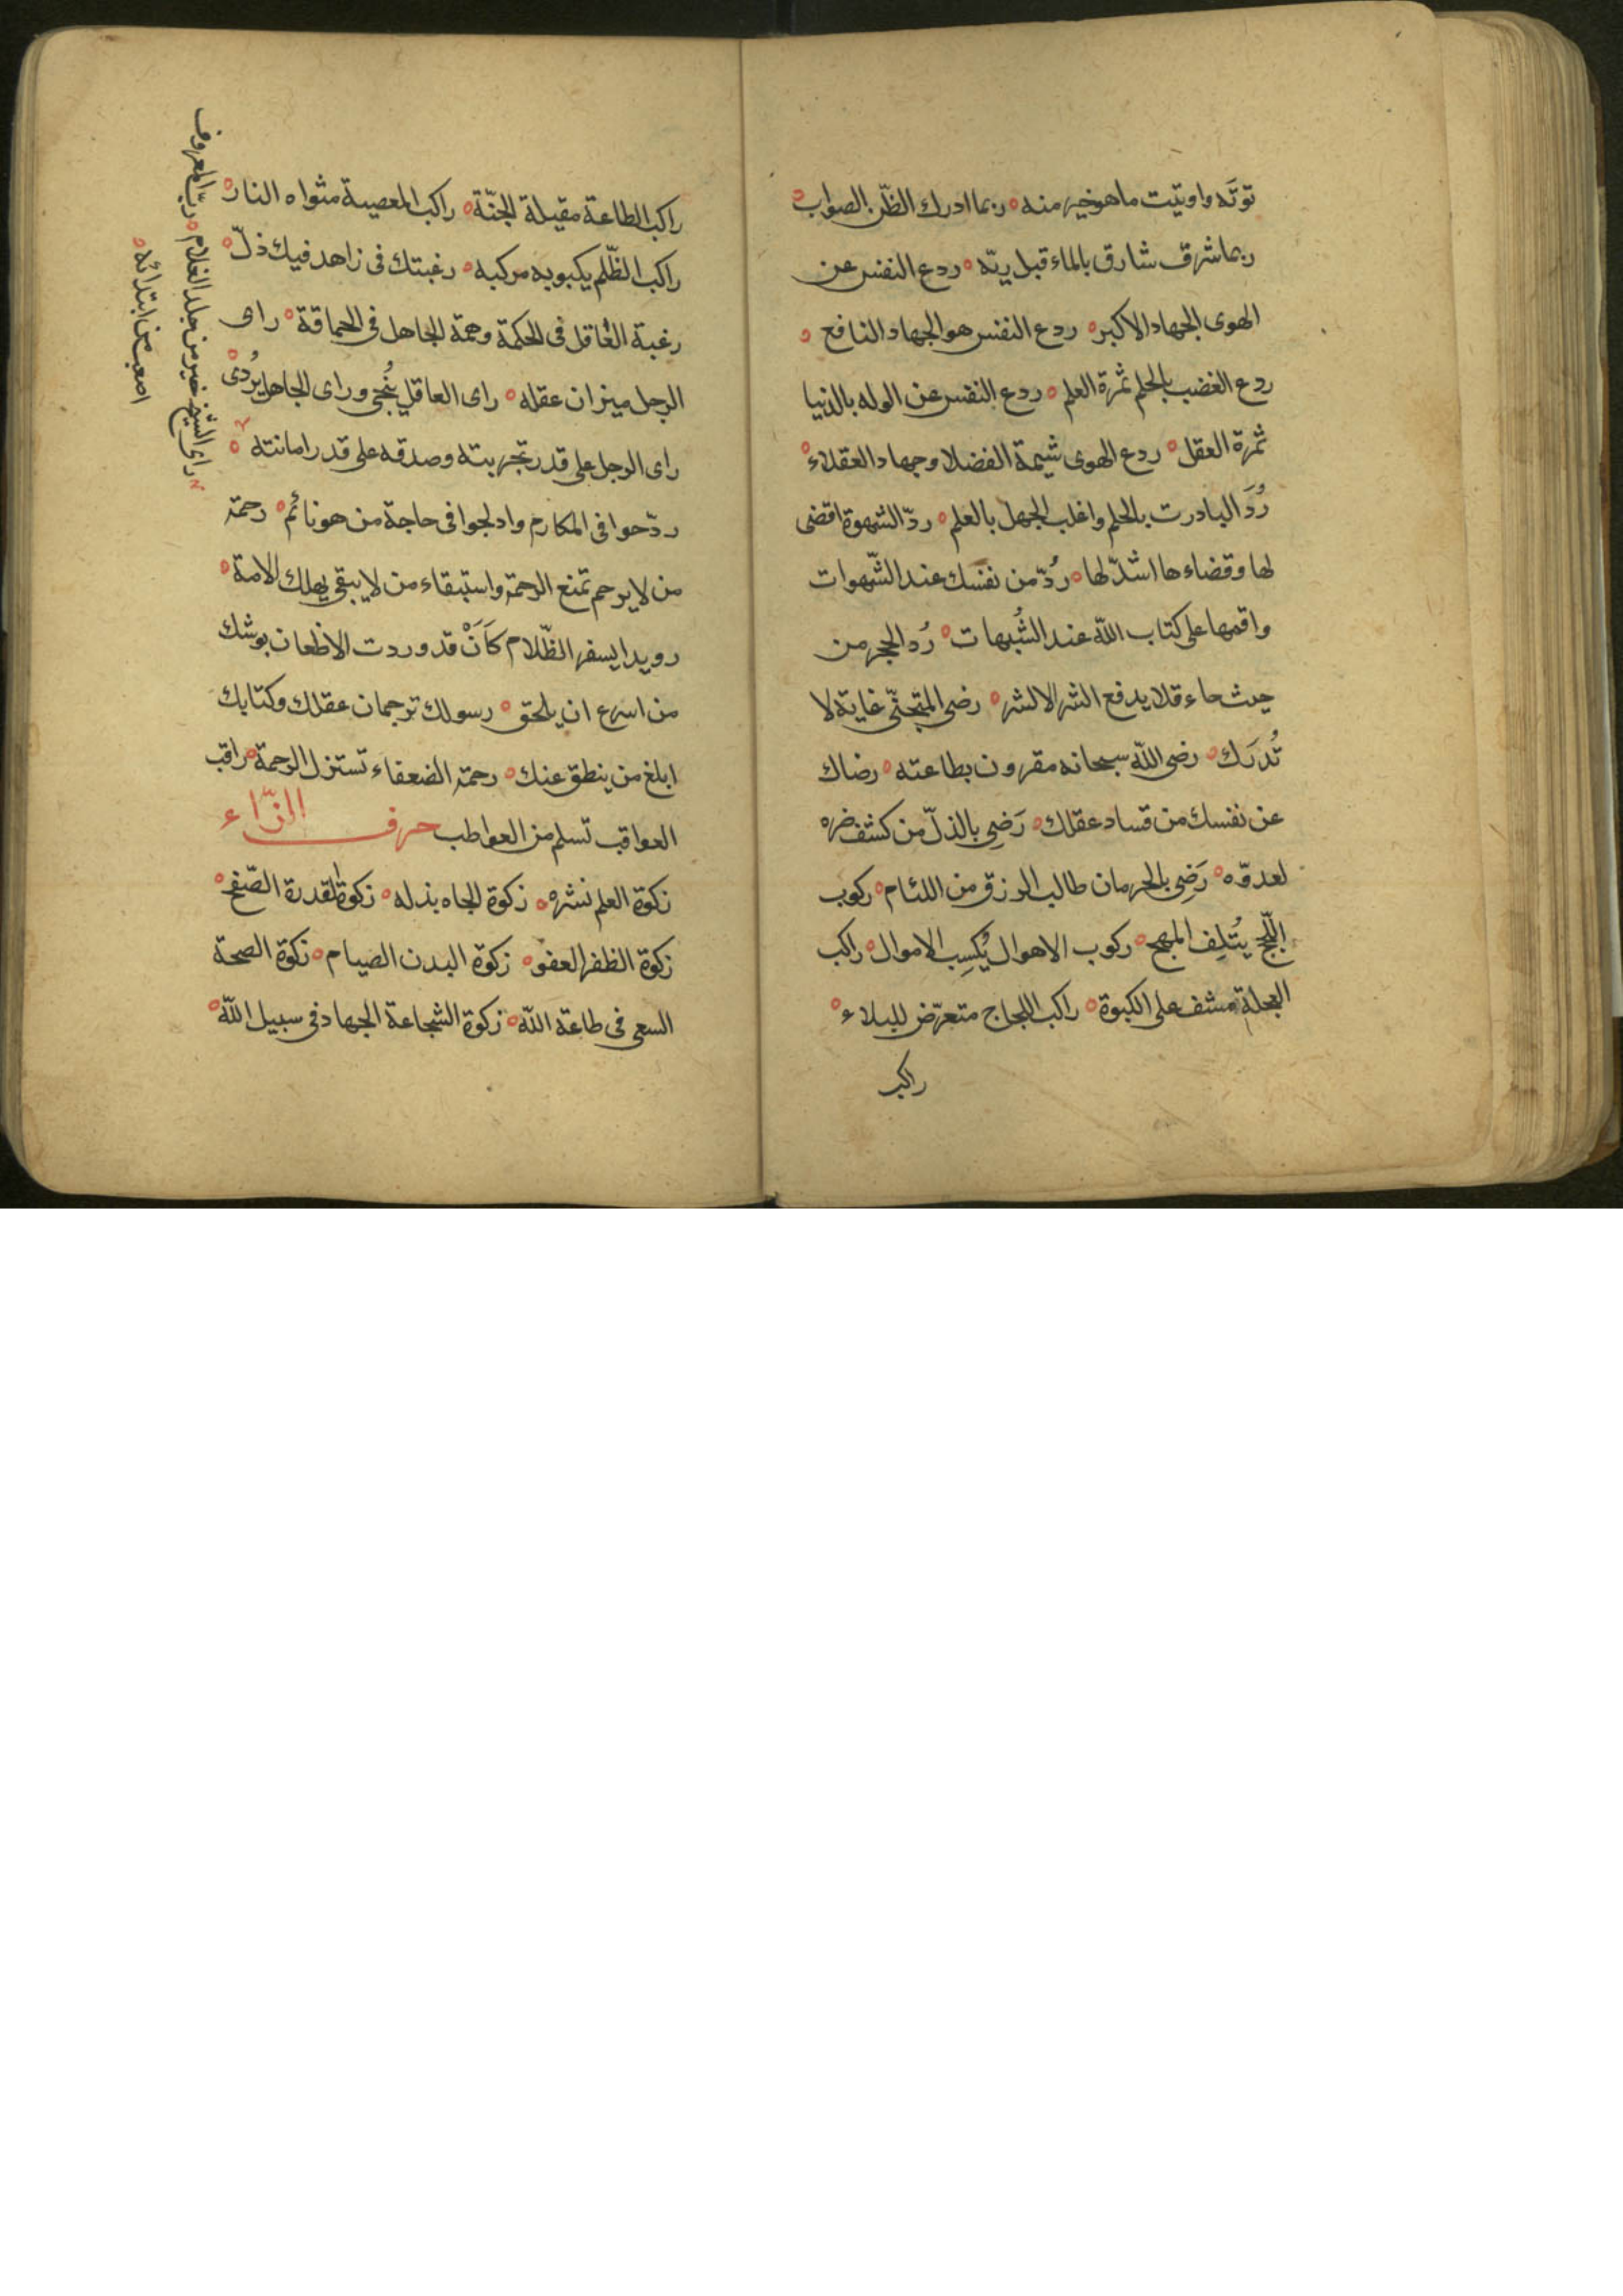 توتَه واوتيت ما هو خير منه ه ربما ادرك الظّن الصواب ه
ربما شرق شارق بالماء قبل ريّه ه ردع النفس عن
الهوى الجهاد الاكبر ه ردع النفس هو الجهاد النافع ه
ردع الغضب بالحلم ثمرة العلم ه ردع النفس عن الوله بالدنيا
ثمرة العقل ه ردع الهوى شيمة الفضلا وجهاد العقلاء ه
رُدَ البادرت بالحلم واغلب الجهل بالعلم ه ردّ الشهوة اقضى
لها وقضاءها اشدّ لها ه رُدّ من نفسك عند الشّهوات
واقمها على كتاب الله عند الشُبهات ه رُد الحجر من
حيث حاء فلا يدفع الشر الا الشر ه رضى المتجنّي غاية لا
تُدرَك ه رضى الله سبحانه مقرون بطاعته ه رضاك
عن نفسك من فساد عقلك ه رَضِي بالذلّ من كشف ضره
لعدوّه ه رَضِي بالحرمان طالب الرزق من اللئام ه ركوب
اللّجج يُتلِف المهج ه ركوب الاهوال يُكسِب الاموال ه راكب
العجلة مشف على الكبوة ه راكب اللجاج متعرّض للبلاء ه
راكب
راكب الطاعة مقيلة الجنّة ه راكب المعصية مثواه النار ه
راكب الظّلم يكبو به مركبه ه رغبتك فى زاهد فيك ذلّ ه
رغبة العاقل فى الحكمة وهمة الجاهل فى الحماقة ه راى
الرجل ميزان عقله ه راى العاقل يُنجى وراى الجاهل يُردى ه
راى الرجل على قدر تجربته وصدقه على قدر امانته ه
ردّحوا فى المكارم وادلجوا فى حاجة من هو نائم ه رحمة
من لا يرحم تمنع الرحمة واستبقاء من لا يبقى يهلك الامة ه
رويدا يسفر الظّلام كَاَنْ قد وردت الاظعان يوشك
من اسرع ان يلحق ه رسولك ترجمان عقلك وكتابك
ابلغ من ينطق عنك ه رحمة الضعفاء تستنزل الرحمة ه راقب
العواقب تسلم من العواطب حرف الزّاء
زكوة العلم نشره ه زكوة الجاه بذله ه زكوة القدرة الصّفح ه
زكوة الظفر العفو ه زكوة البدن الصيام ه زكوة الصحة
السعى فى طاعة الله ه زكوة الشجاعة الجهاد فى سبيل الله ه
راى الشيخ خير من جلد الغلام ه ربّ المعروف
اصعب من ابتدائه ه